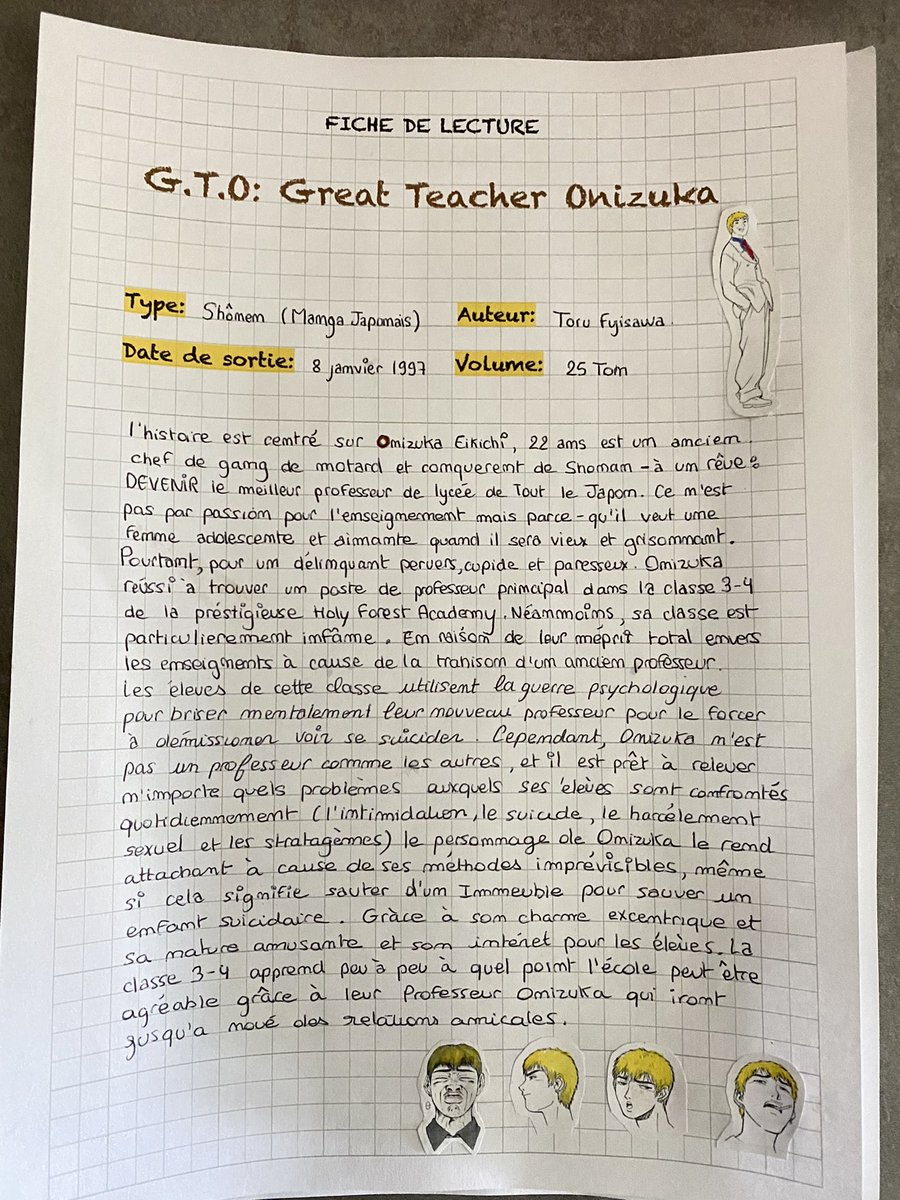 FICHE DE LECTURE
G.T.O: Great Teacher Onizuka
Type: Shônen (Manga Japonais) Auteur: Toru Fujisawa.
Date de sortie: 8 janvier 1997 Volume: 25 Tom
l'histoire est centré sur Onizuka Eikichi, 22 ans est un ancien
chef de gang de motard et conquerent de Shonan - à un rêve :
DEVENIR le meilleur professeur de lycée de Tout le Japon. Ce n'est
pas par passion pour l'enseignement mais parce-qu'il veut une
femme adolescente et aimante quand il sera vieux et grisonnant.
Pourtant, pour un délinquant pervers, cupide et paresseux. Onizuka
réussi à trouver un poste de professeur principal dans la classe 3-4
de la préstigieuse Holy Forest Academy. Néanmoins, sa classe est
particulierement infâme. En raison de leur mépris total envers
les enseignents à cause de la trahison d'un ancien professeur.
Les éleves de cette classe utilisent la guerre psychologique
pour briser mentalement leur nouveau professeur pour le forcer
à démissionner voir se suicider. Cependant, Onizuka n'est
pas un professeur comme les autres, et il est prêt à relever
n'importe quels problèmes auxquels ses élèves sont confrontés
quotidiennement (l'intimidation, le suicide, le harcèlement
sexuel et les stratagèmes) le personnage de Onizuka le rend
attachant à cause de ses méthodes imprévisibles, même
si cela signifie sauter d'un Immeuble pour sauver un
enfant suicidaire. Grâce à son charme excentrique et
sa nature amusante et son intéret pour les élèves. La
classe 3-4 apprend peu à peu à quel point l'école peut être
agréable grâce à leur Professeur Onizuka qui iront
jusqu'a noué des relations amicales.